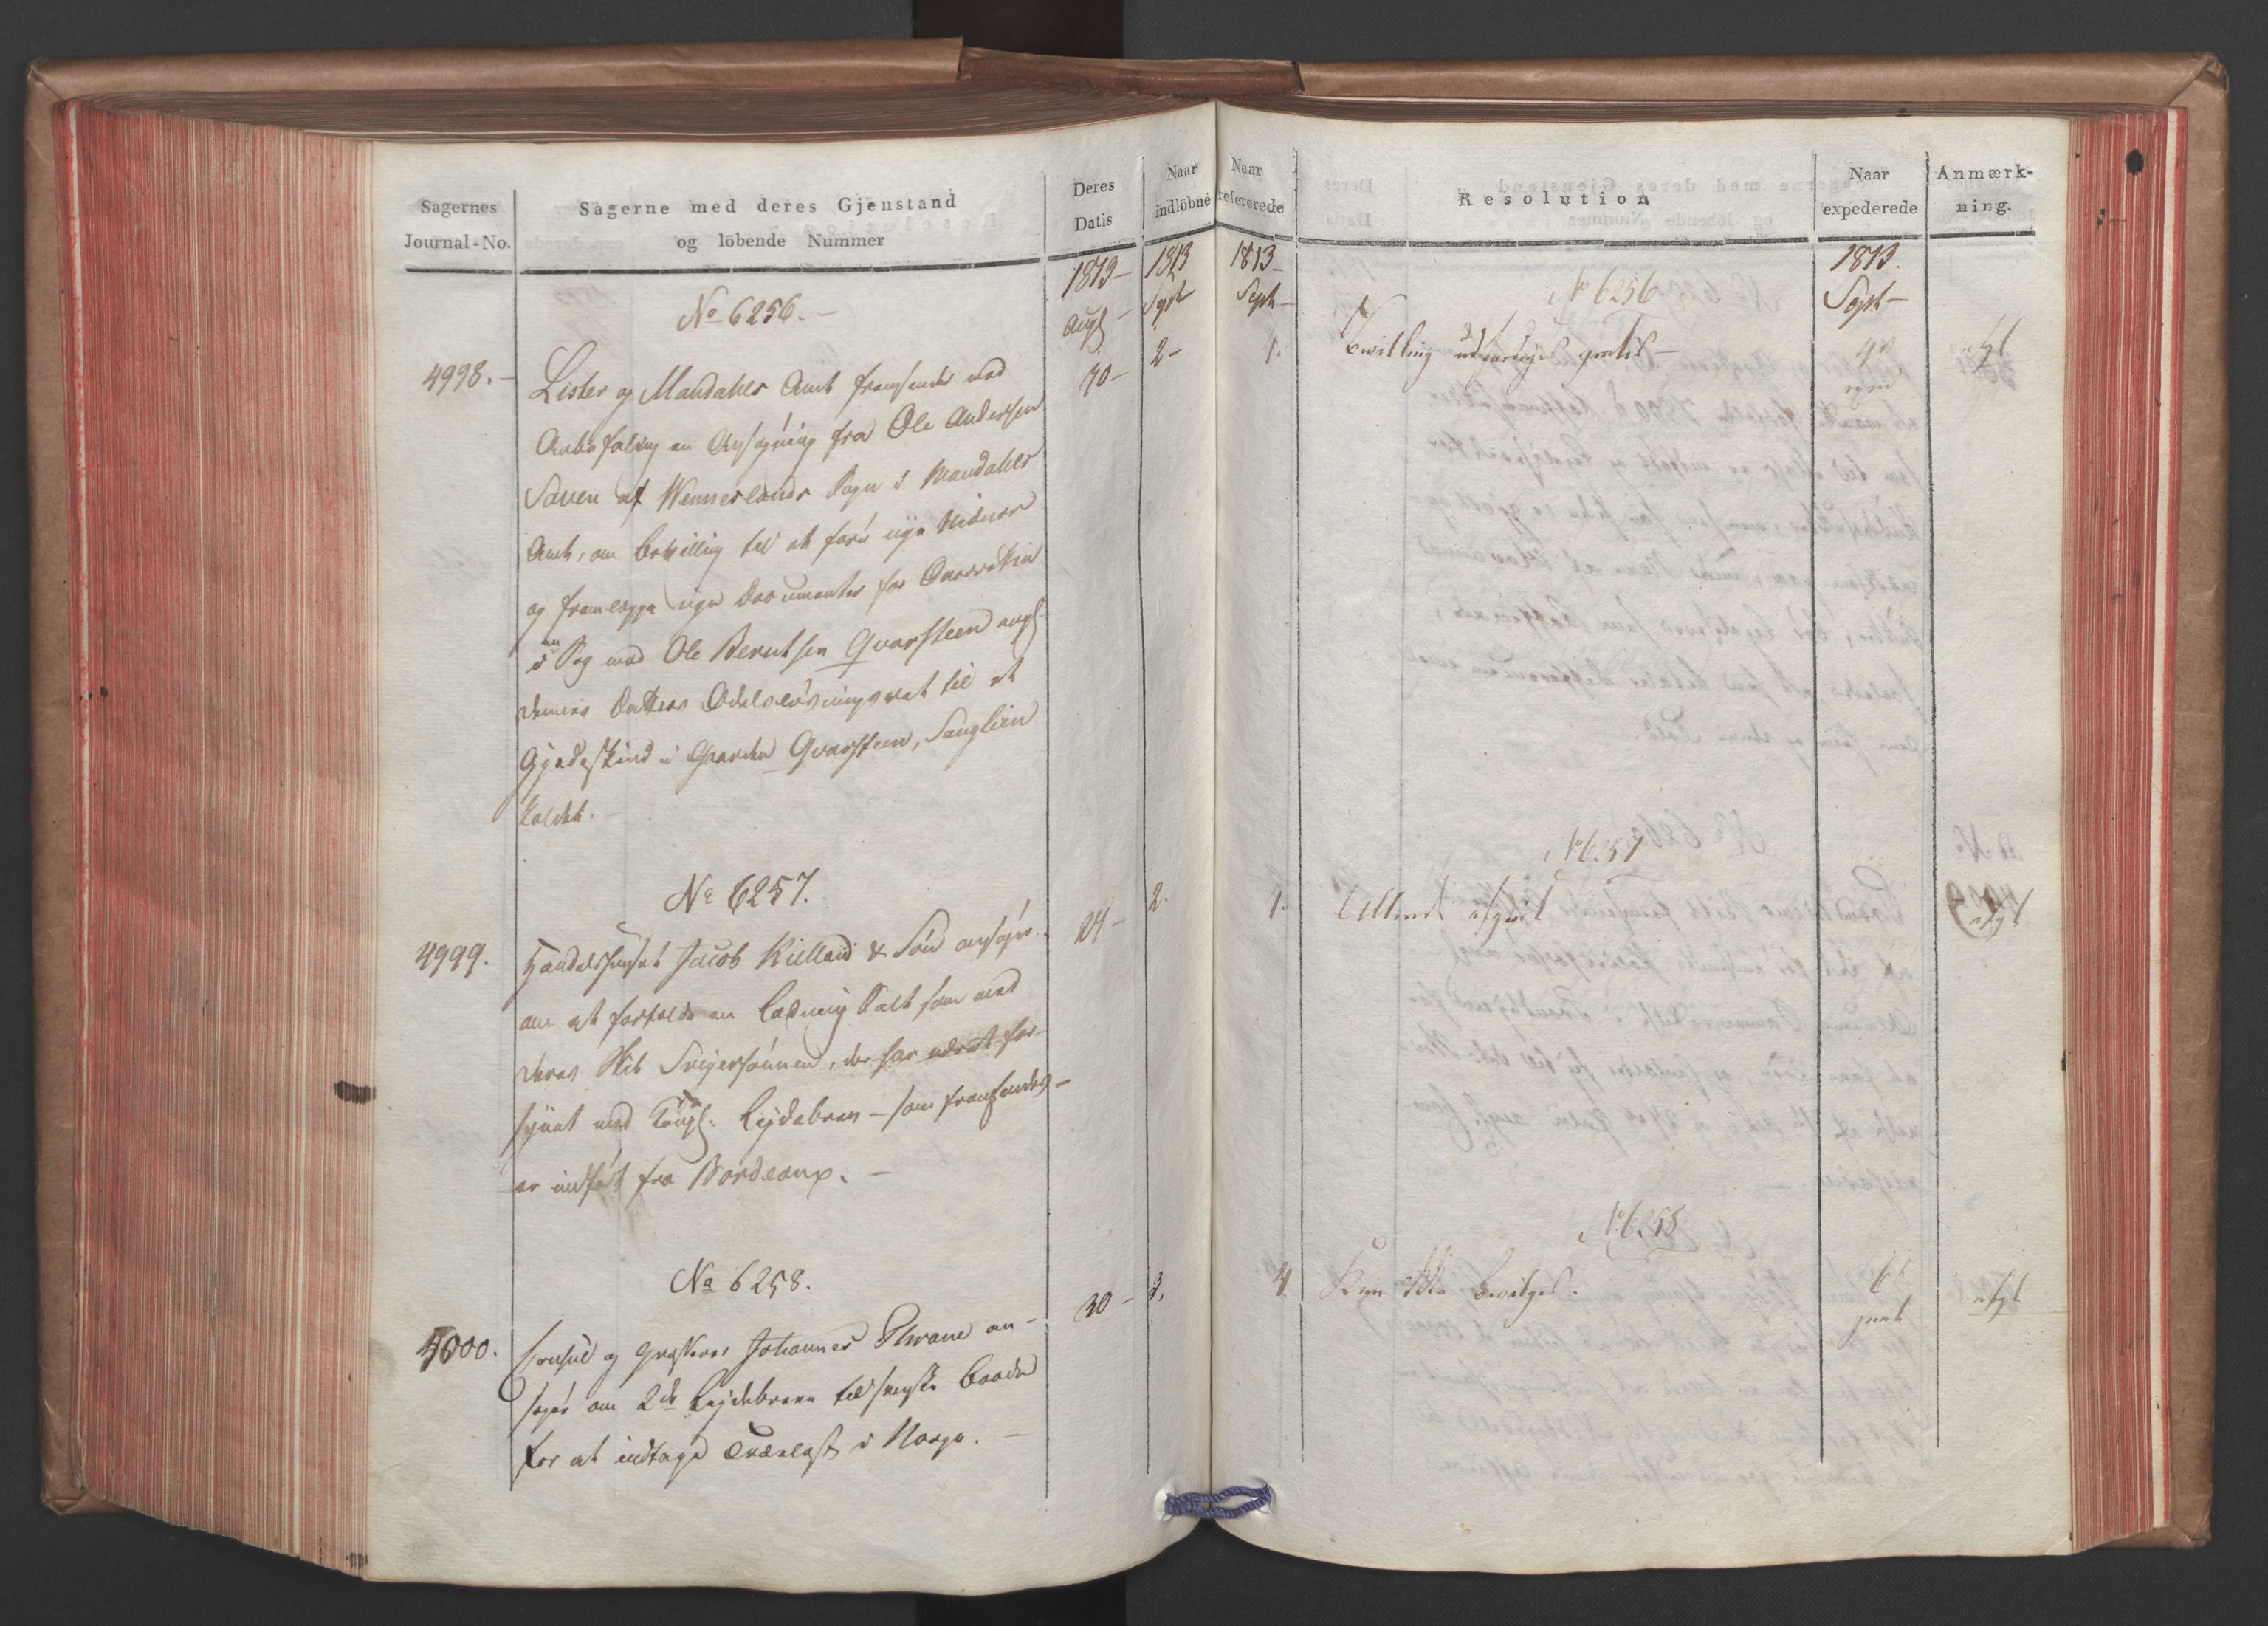 Sagernes
Journal-No.
Sagerne med deres Gjenstand
og löbende Nummer
Deres
Datis
Naar
indlöbne
Naar
refererede
Resolution
Naar
expederede
Anmærk-
ning.
1813 1813 1813 1813.
Augs Septr Septr Septr
No 6256.
4998. Lister og Mandahls Amt fremsender med
Anbefaling en Ansøgning fra Ole Andersen
af Wennerslands Sogn i Mandahls
Amt, om Bevilling til at føre nye Vidner
og fremlægge nye Documenter for Overretten
i en Sag mod Ole Berntsen Qvarsteen angl.
dennes Datters Odelsløsningsret til et
Gjødeskind i Gaarden Qvarsteen, Sanglien
kaldet.
30 2 4.
No 6256
Bevilling udfærdiges gratis
4de
afgl
No 6257.
4999. Handelshuset Jacob Kielland & Søn ansøger
om at fortolde en Ladning Salt som med
deres Skib Svigersønnen, der har været for-
synet med Kongl. Lejdebrev som fremsendes
er indført fra Bordeaux.
24 2. 4.
No 6257
afgl
No 6258.
5000. Consul og Grosserer Johannes Thrane an-
søger om 2de Lejdebreve til svenske Baade
for at indtage Trælast i Norge.
30 3. 4.
No 6258
Kan ikke bevilges.
afgl